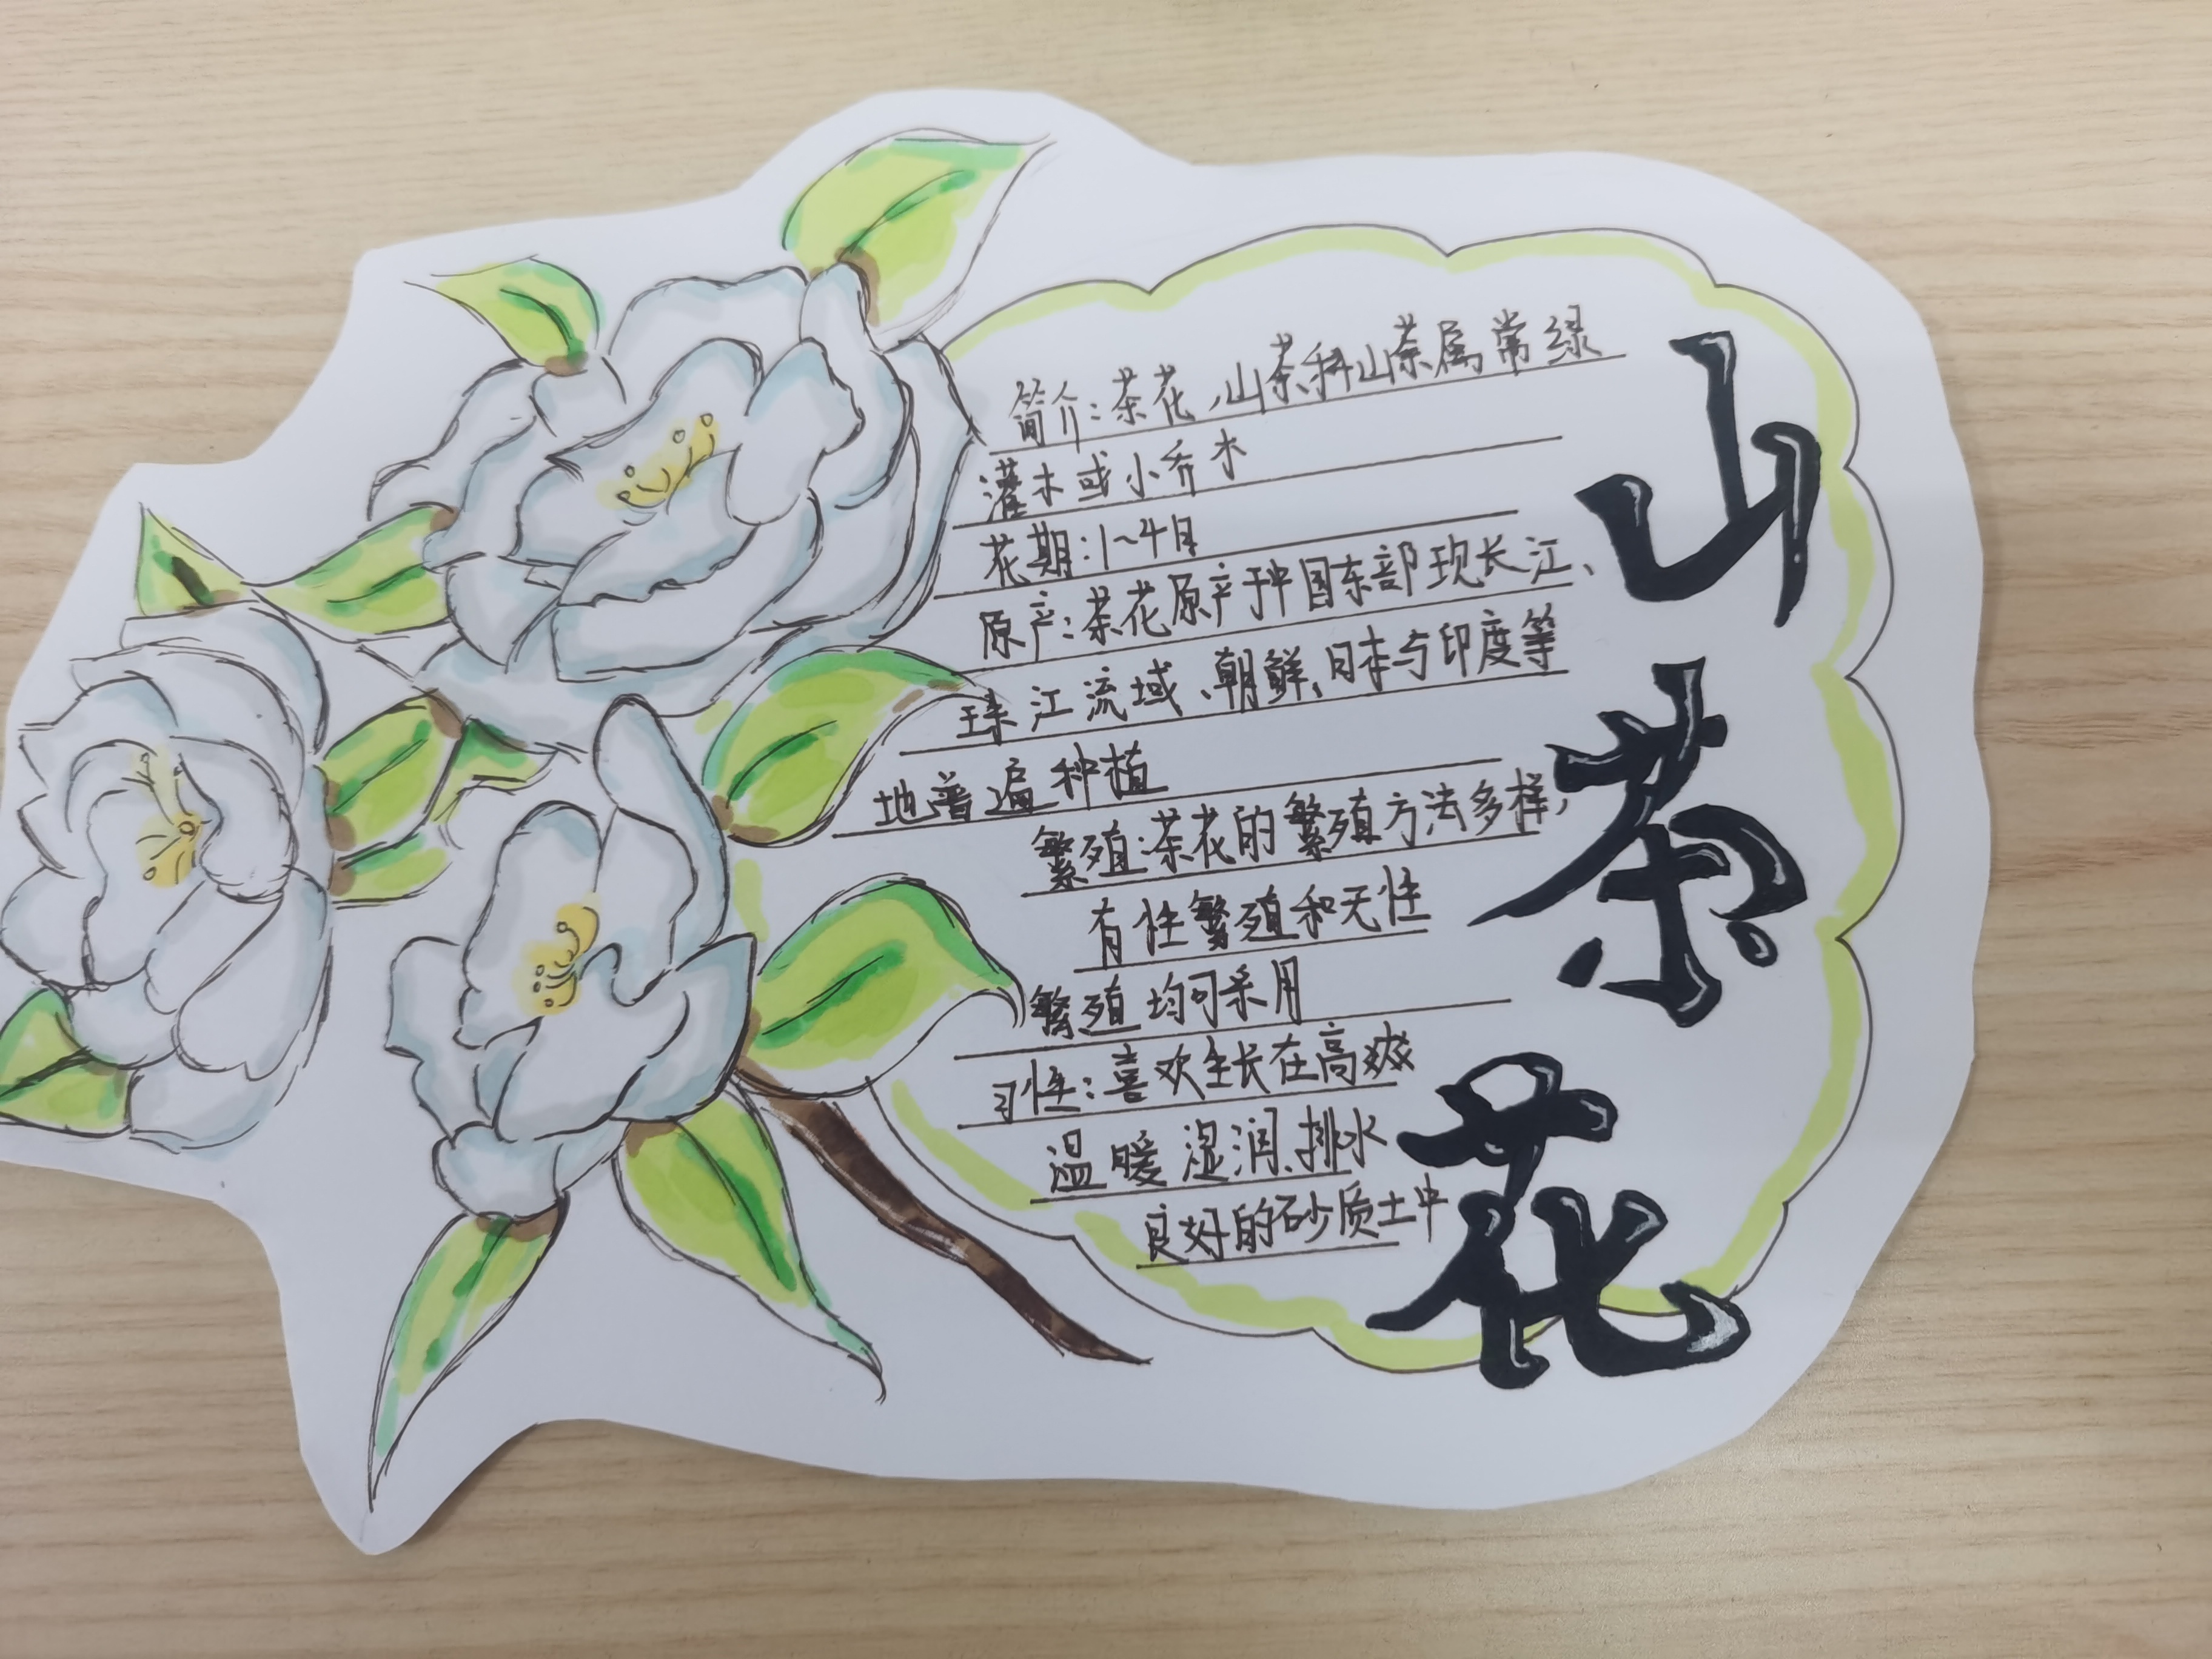 山茶花
简介：茶花，山茶科山茶属常绿
灌木或小乔木
花期：1~4月
原产：茶花原产于中国东部现长江、
珠江流域、朝鲜、日本与印度等
地普遍种植
繁殖：茶花的繁殖方法多样，
有性繁殖和无性
繁殖均可采用
习性：喜欢生长在高爽
温暖湿润、排水
良好的砂质土中